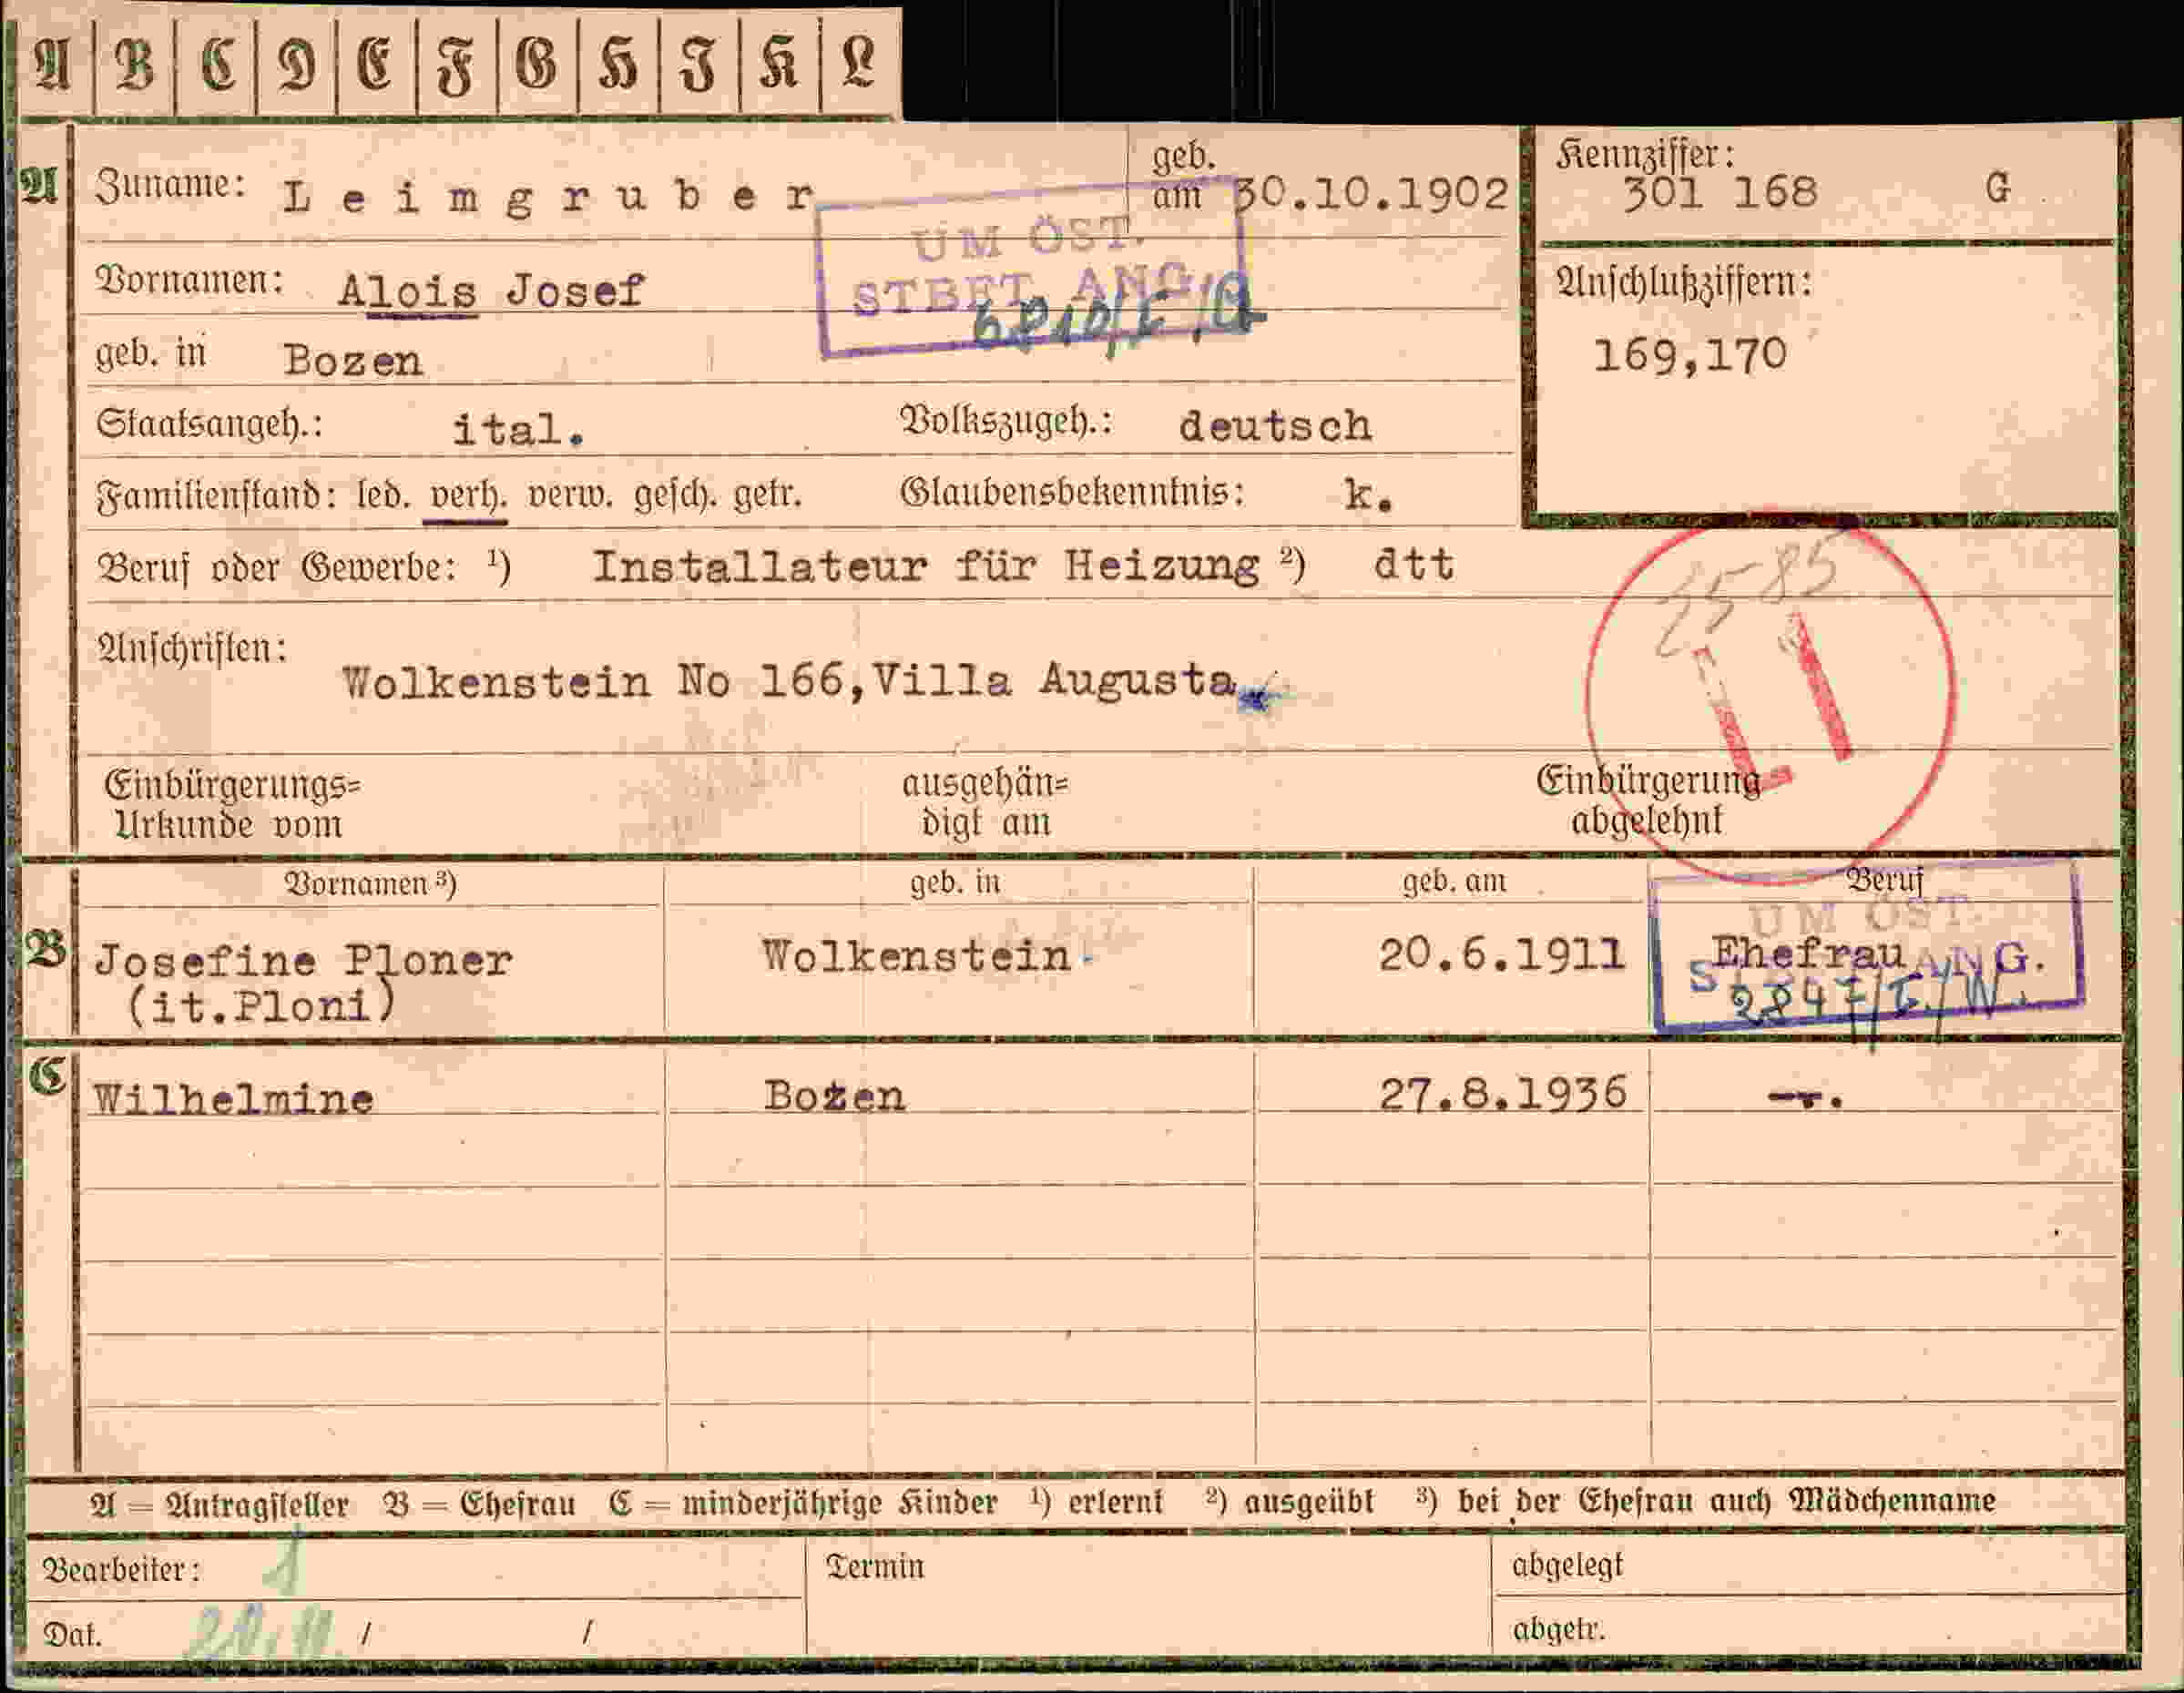 A B C D E F G H I K L
A Zuname: Leimgruber geb. am 30.10.1902 Kennziffer: 301 168 G
UM ÖST. STBET. ANG.
Vornamen: Alois Josef Anschlußziffern:
geb. in Bozen 169,170
Staatsangeh.: ital. Volkszugeh.: deutsch
Familienstand: led. verh. verw. gesch. getr. Glaubensbekenntnis: k.
Beruf oder Gewerbe: ¹) Installateur für Heizung ²) dtt
Anschriften:
Wolkenstein No 166,Villa Augusta
Einbürgerungs= ausgehän= Einbürgerung
Urkunde vom digt am abgelehnt
Vornamen ³) geb. in geb. am Beruf
UM ÖST.
B Josefine Ploner Wolkenstein 20.6.1911 Ehefrau
ANG.
(it.Ploni)
C Wilhelmine Bozen 27.8.1936 --.
A = Antragsteller B = Ehefrau C = minderjährige Kinder ¹) erlernt ²) ausgeübt ³) bei der Ehefrau auch Mädchenname
Bearbeiter: 1 Termin abgelegt
Dat. / / abgetr.